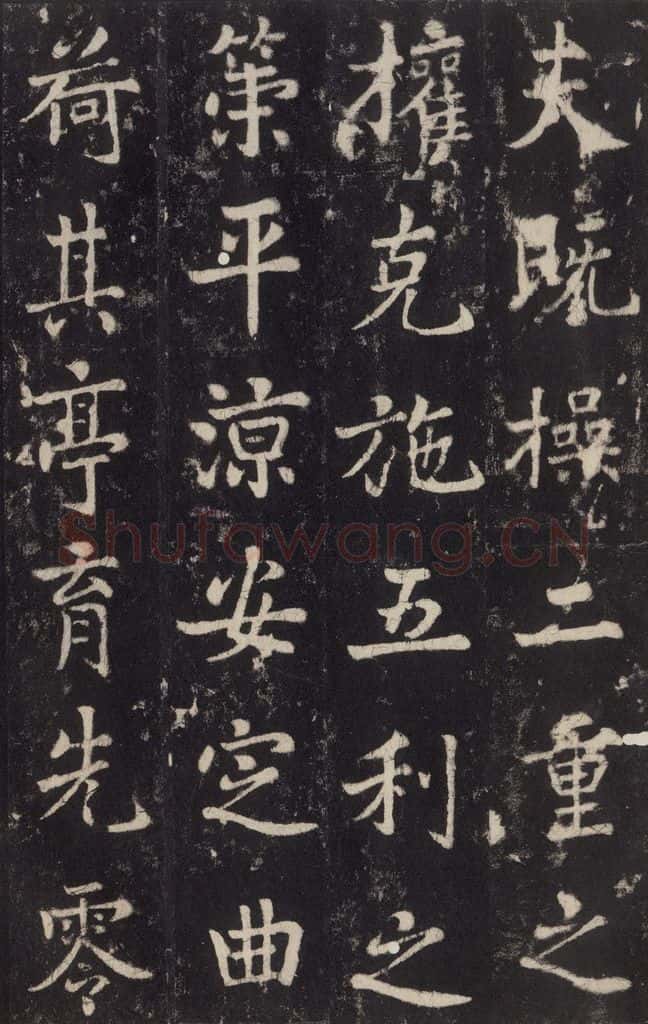 夫既操二重之
權克施五利之
策平涼安定曲
荷其亭育先零
Shufawang.CN